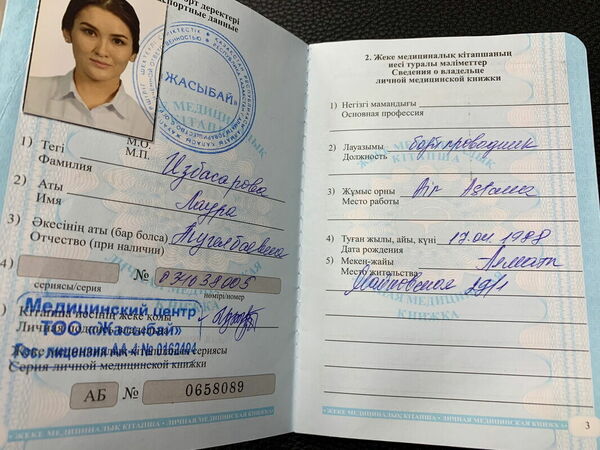 порт деректері
спортные данные
ЖАСЫБАЙ»
М.О.
М.П.
1) Тегі
Фамилия
Избасарова
2) Аты
Имя
Лаура
3) Әкесінің аты (бар болса)
Отчество (при наличии)
4)
сериясы/серия
№ 071038005
нөмірі/номер
Медицинский центр
ТОО «Жасыбай»
Гос. лицензия АА-4 № 0162404
Серия личной медицинской книжки
АБ № 0658089
• ЖЕКЕ МЕДИЦИНАЛЫҚ КІТАПША • ЛИЧНАЯ МЕДИЦИНСКАЯ КНИЖКА •
2. Жеке медициналық кітапшаның
иесі туралы мәліметтер
Сведения о владельце
личной медицинской книжки
1) Негізгі мамандығы
Основная профессия
2) Лауазымы
Должность
бортпроводник
3) Жұмыс орны
Место работы
Air Astana
4) Туған жылы, айы, күні 17.04 1988
Дата рождения
5) Мекен-жайы
Место жительства
Алматы
• ЖЕКЕ МЕДИЦИНАЛЫҚ КІТАПША • ЛИЧНАЯ МЕДИЦИНСКАЯ КНИЖКА •
3